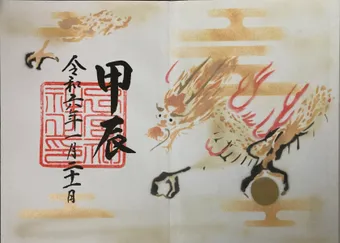 甲辰
令和六年一月二十一日